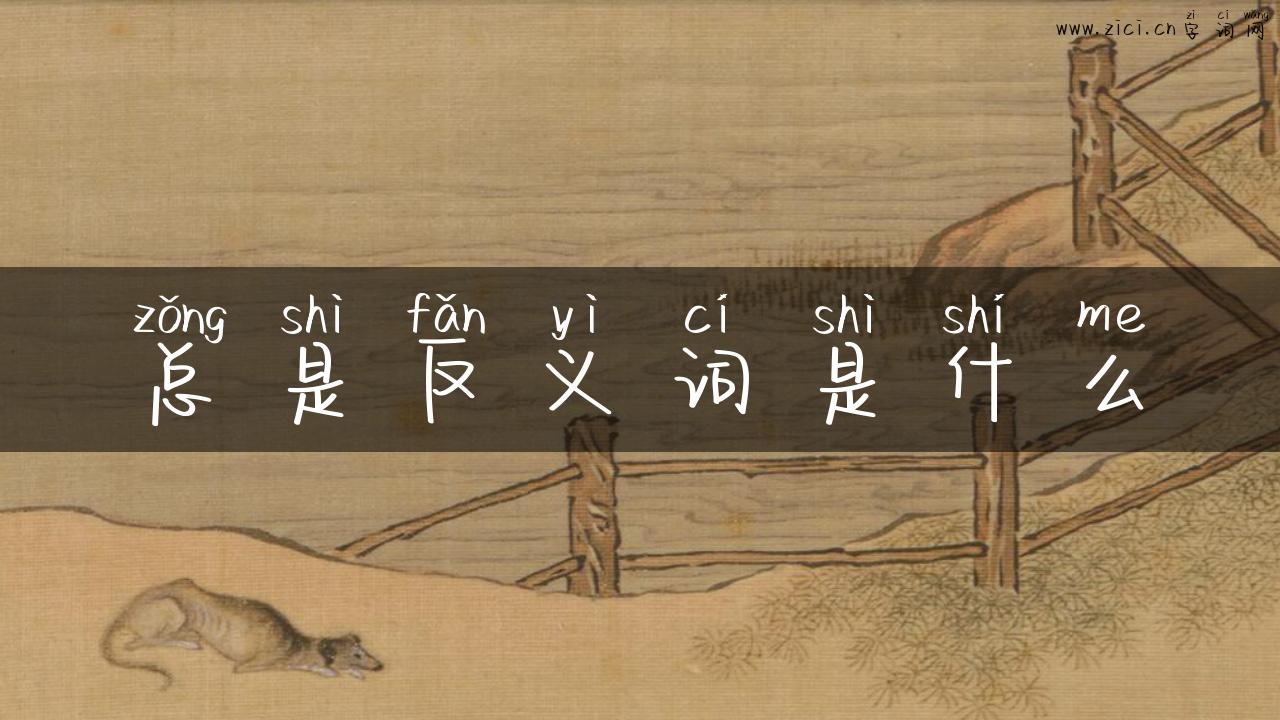 zi ci wang
www.zici.cn字词网
zǒng shì fǎn yì cí shì shí me
总是反义词是什么